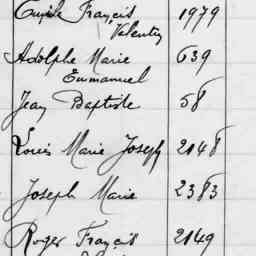 Emile Françis 1979
Valentin
Adolphe Marie 639
Emmanuel
Jean Baptiste 58
Louis Marie Joseph 2148
Joseph Marie 2383
Roger Françis 2149